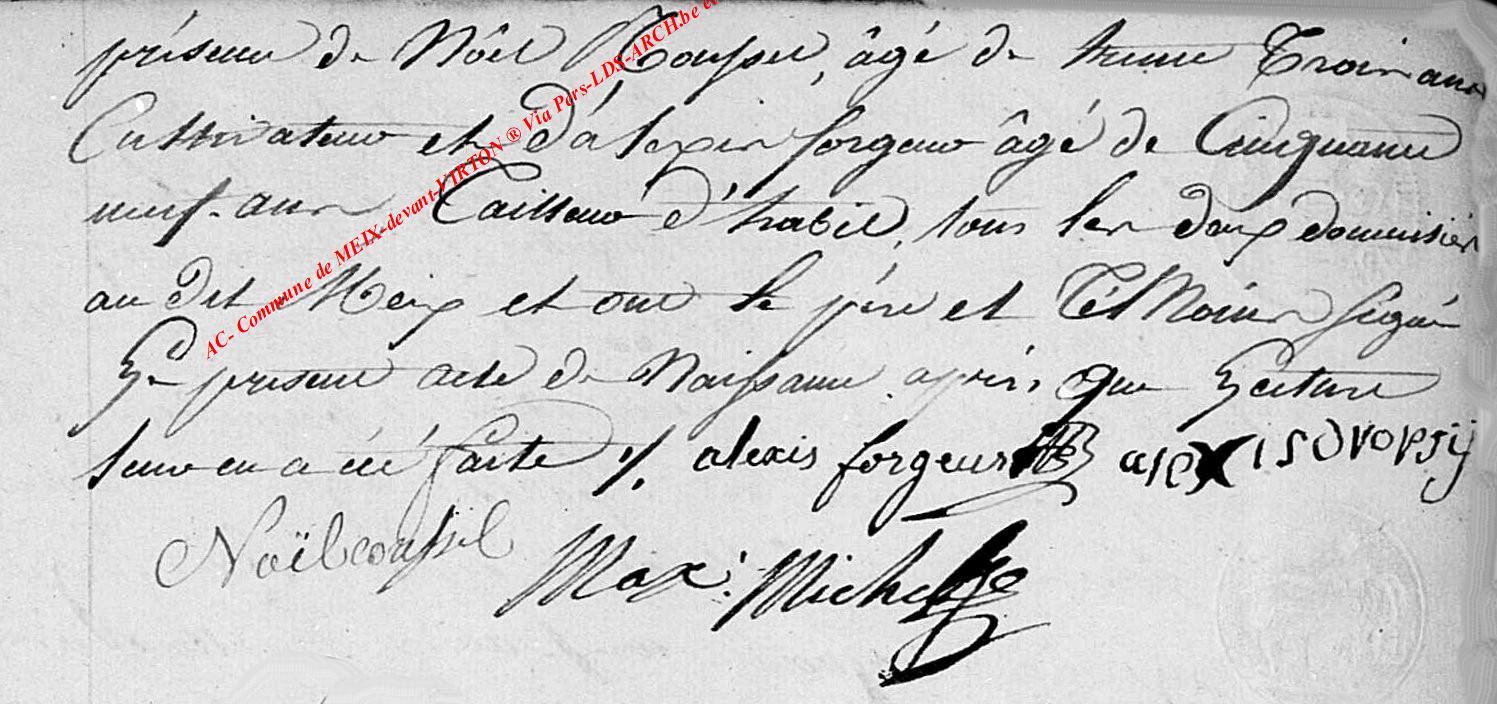 présence de Nôel Coussel, âgé de trente Trois ans
Cultivateur et d'alexis forgeur âgé de Cinquante
neuf ans Tailleur d'habil, tous les deux domiciliés
au dit Meix et ont le père et Témoins signé
Le présent acte de Naissance après que Lecture
leur en a été faite ./. alexis forgeur alexis
Noël coussel Max: Michel
AC- Commune de MEIX-devant-VIRTON ® Via Pers-LDS-ARCH.be et